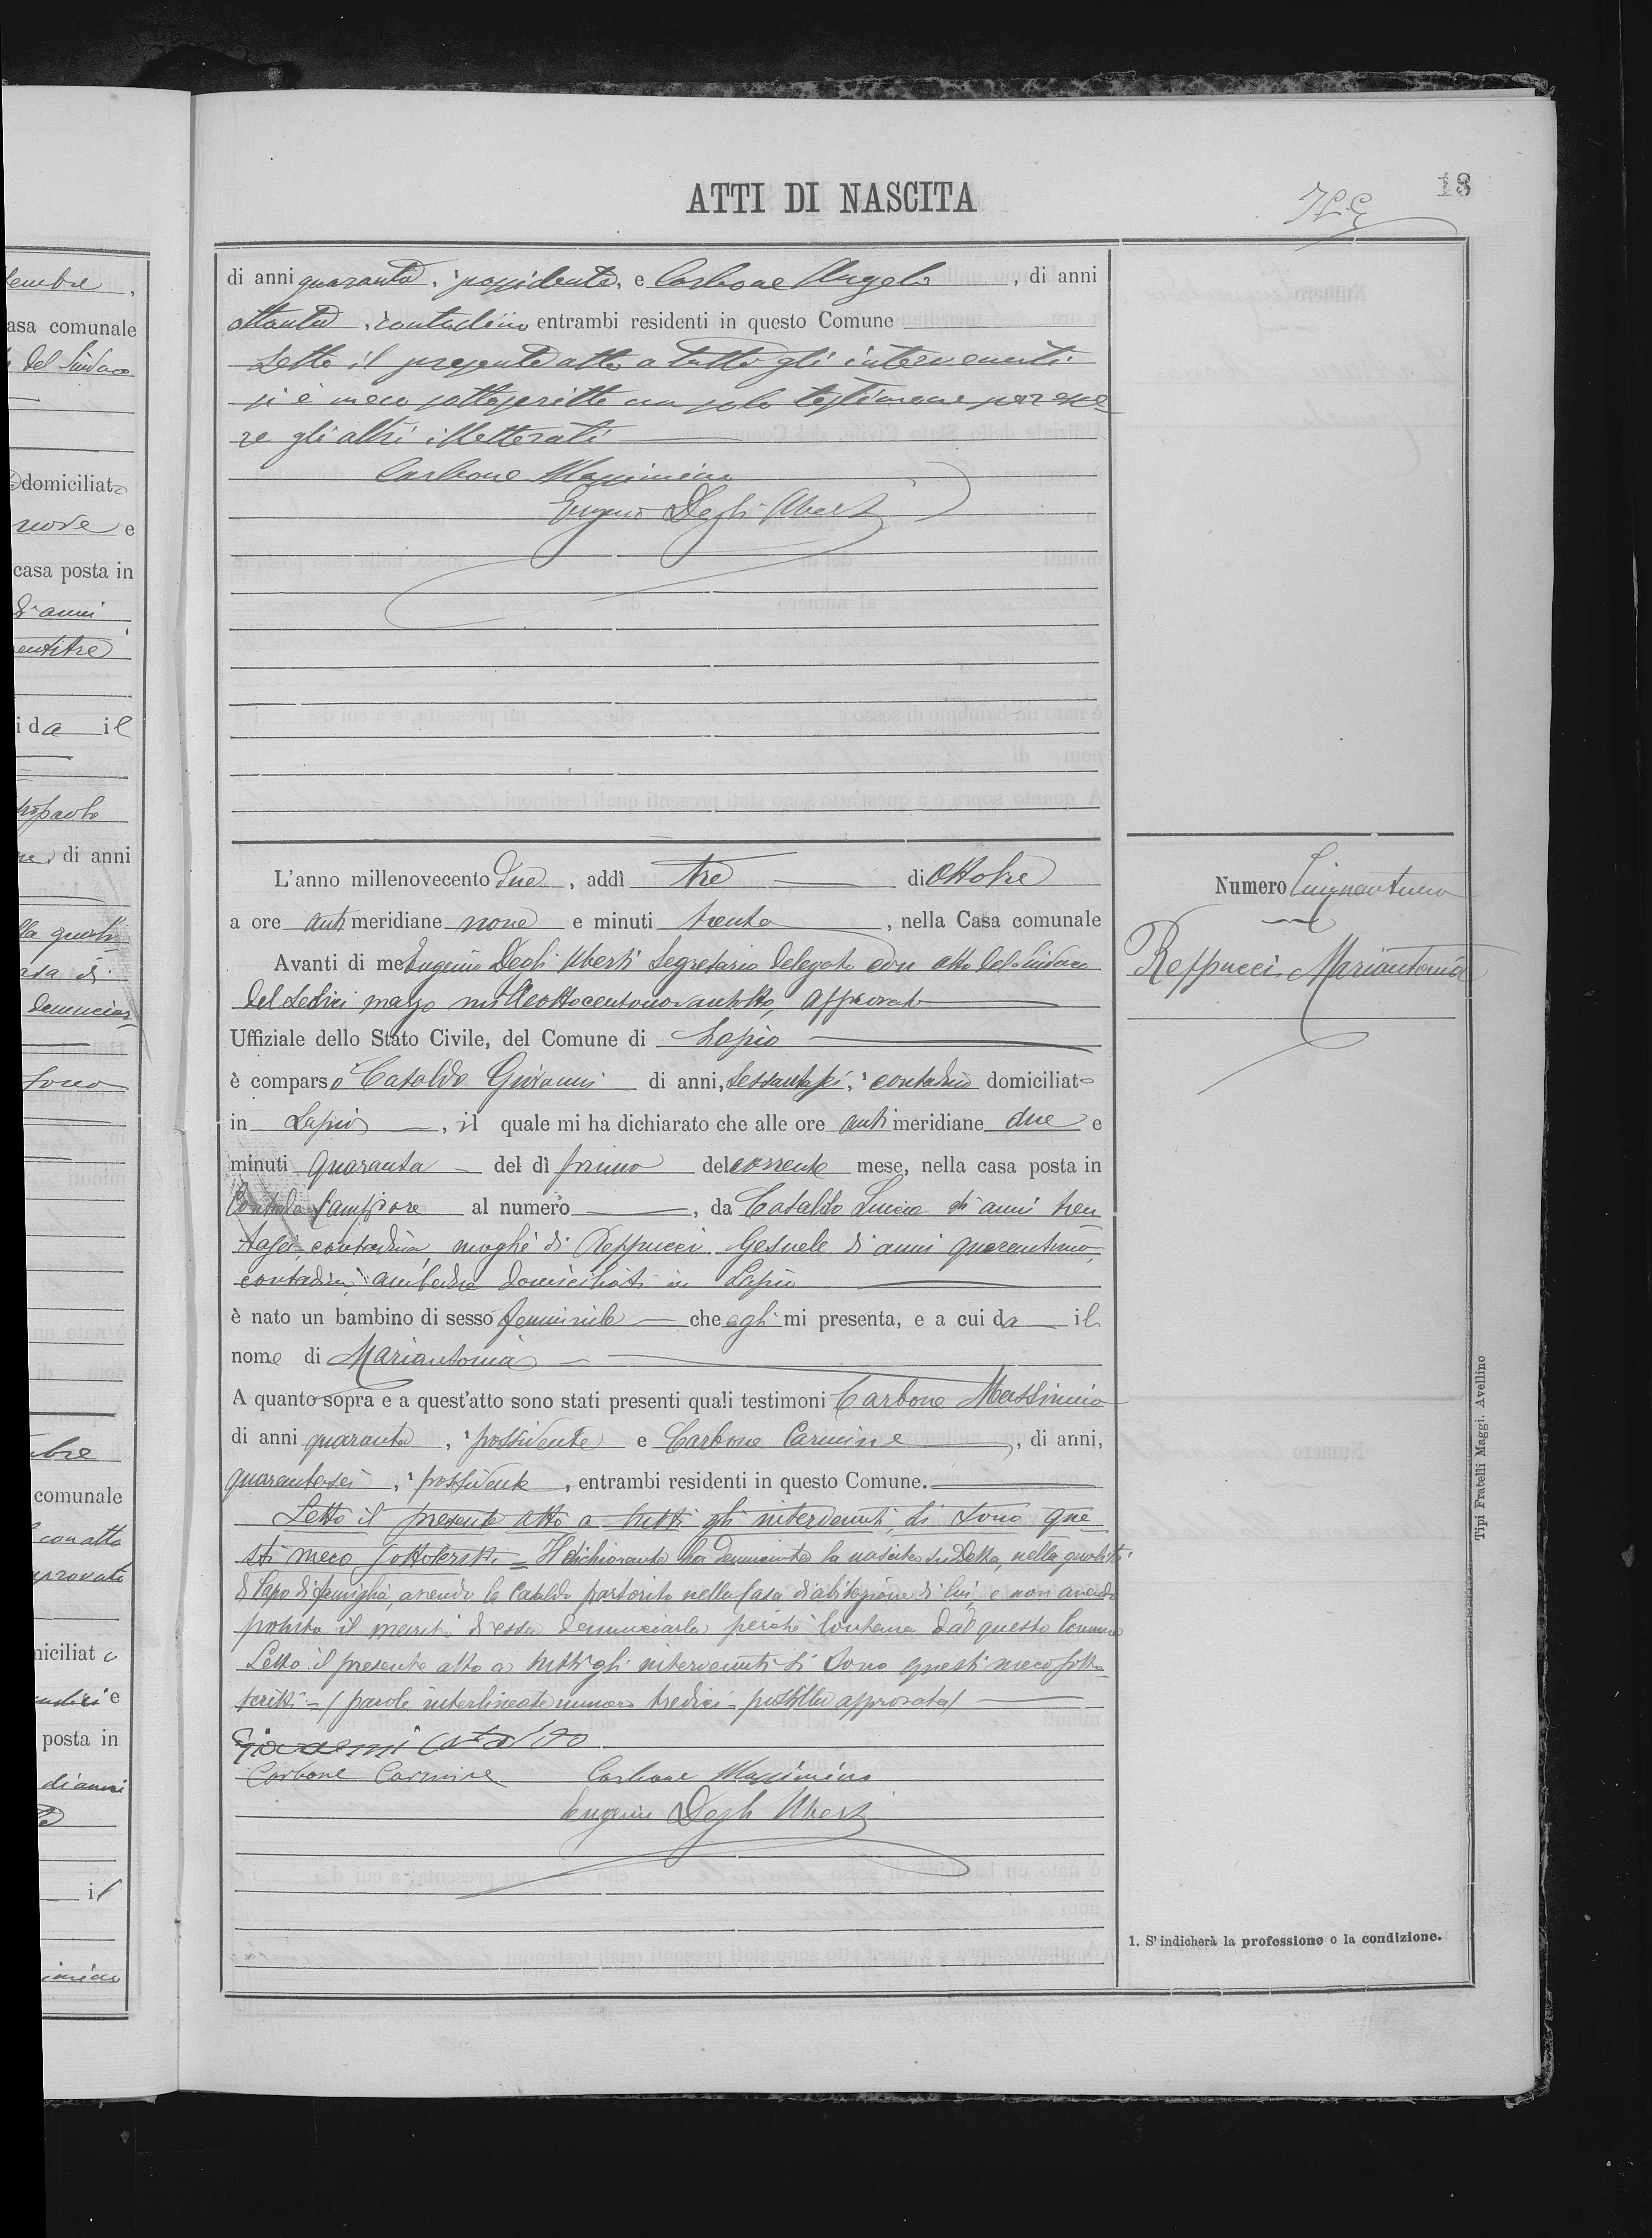 ATTI DI NASCITA
18
di anni quaranta, possidente, e Carbone Angelo, di anni
ottanta, contadino entrambi residenti in questo Comune
Letto il presente atto a tutti gli intervenuti
si è meco sottoscritto un solo testimone per esse-
re gli altri illetterati
Carbone Massimino
Eugenio Degli Uberti
L'anno millenovecento due, addì tre di Ottobre
a ore anti meridiane nove e minuti trenta, nella Casa comunale
Avanti di me Eugenio Degli Uberti Segretario delegato con atto del Sindaco
del sedici marzo milleottocentonovantotto, approvato
Uffiziale dello Stato Civile, del Comune di Lapio
è comparso Cataldo Giovanni di anni, sessantasei, contadino domiciliato
in Lapio, il quale mi ha dichiarato che alle ore anti meridiane due e
minuti quaranta del dì primo del corrente mese, nella casa posta in
Contrada Campore al numero, da Cataldo Lucia di anni tren
tasei, contadina, moglie di Reppucci Gesuele di anni quarantuno,
contadino, ambedue domiciliati in Lapio
è nato un bambino di sesso femminile che egli mi presenta, e a cui da il
nome di Mariantonia
A quanto sopra e a quest'atto sono stati presenti quali testimoni Carbone Massimino
di anni quaranta, possidente e Carbone Carmine, di anni,
quarantasei, possidente, entrambi residenti in questo Comune.
Letto il presente atto a tutti gli intervenuti, si sono que
sti meco sottoscritti = Il dichiarante ha denunciato la nascita suddetta, nella qualità
di Capo di famiglia, avendo la Cataldo partorito nella Casa d'abitazione di lui, e non avendo
potuto il marito di essa denunciarla perchè lontano da questo Comune
Letto il presente atto a tutti gli intervenuti si sono questi meco sotto
scritti = (parole interlineate numero tredici = postilla approvata)
Giovanni Cataldo
Carbone Carmine Carbone Massimino
Eugenio Degli Uberti
Numero Cinquantuno
Reppucci Mariantonia
1. S'indicherà la professione o la condizione.
Tipi Fratelli Maggi. Avellino